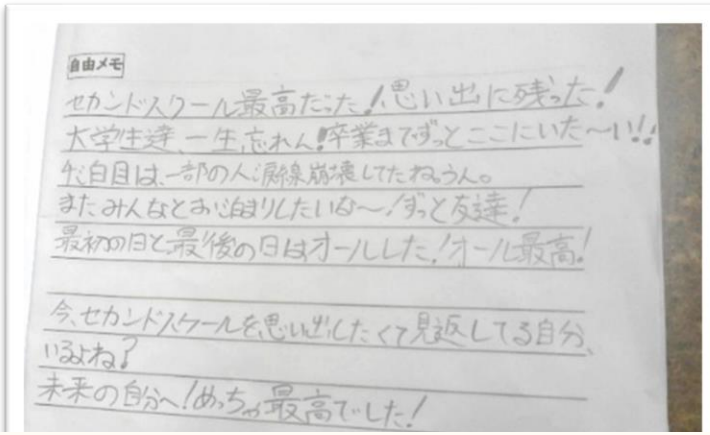 自由メモ
セカンドスクール最高だった!思い出に残った!
大学生達、一生忘れん!卒業までずっとここにいた〜い!!
4泊目は、一部の人涙線崩壊してたね。うん。
またみんなとお泊まりしたいな〜!ずっと友達!
最初の日と最後の日はオールした!オール最高!
今、セカンドスクールを思い出したくて見返してる自分、
いるよね?
未来の自分へ!めっちゃ最高でした!